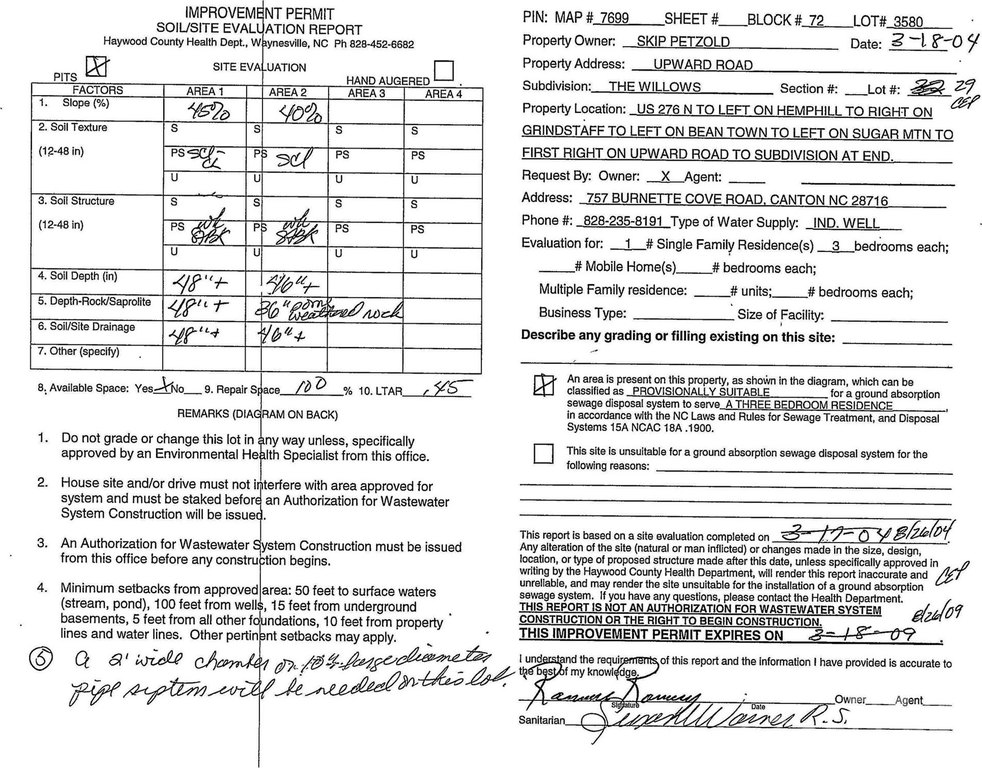 IMPROVEMENT PERMIT
SOIL/SITE EVALUATION REPORT
Haywood County Health Dept., Waynesville, NC Ph 828-452-6682
PITS X SITE EVALUATION HAND AUGERED
FACTORS AREA 1 AREA 2 AREA 3 AREA 4
1. Slope (%) 45% 40%
2. Soil Texture S S S S
(12-48 in) PS SCL-CL PS SCL PS PS
U U U U
3. Soil Structure S S S S
(12-48 in) PS wk SBK PS wk SBK PS PS
U U U U
4. Soil Depth (in) 48"+ 46"+
5. Depth-Rock/Saprolite 48"+ 36" some weathered rock
6. Soil/Site Drainage 48"+ 46"+
7. Other (specify)
8. Available Space: Yes X No 9. Repair Space 100 % 10. LTAR .45
REMARKS (DIAGRAM ON BACK)
1. Do not grade or change this lot in any way unless, specifically
approved by an Environmental Health Specialist from this office.
2. House site and/or drive must not interfere with area approved for
system and must be staked before an Authorization for Wastewater
System Construction will be issued.
3. An Authorization for Wastewater System Construction must be issued
from this office before any construction begins.
4. Minimum setbacks from approved area: 50 feet to surface waters
(stream, pond), 100 feet from wells, 15 feet from underground
basements, 5 feet from all other foundations, 10 feet from property
lines and water lines. Other pertinent setbacks may apply.
5 A 2' wide chamber or 10" large diameter
pipe system will be needed on this lot.
PIN: MAP # 7699 SHEET # BLOCK # 72 LOT# 3580
Property Owner: SKIP PETZOLD Date: 3-18-04
Property Address: UPWARD ROAD
Subdivision: THE WILLOWS Section #: Lot #: 29
CEP
Property Location: US 276 N TO LEFT ON HEMPHILL TO RIGHT ON
GRINDSTAFF TO LEFT ON BEAN TOWN TO LEFT ON SUGAR MTN TO
FIRST RIGHT ON UPWARD ROAD TO SUBDIVISION AT END.
Request By: Owner: X Agent:
Address: 757 BURNETTE COVE ROAD, CANTON NC 28716
Phone #: 828-235-8191 Type of Water Supply: IND. WELL
Evaluation for: 1 # Single Family Residence(s) 3 bedrooms each;
# Mobile Home(s) # bedrooms each;
Multiple Family residence: # units; # bedrooms each;
Business Type: Size of Facility:
Describe any grading or filling existing on this site:
X An area is present on this property, as shown in the diagram, which can be
classified as PROVISIONALLY SUITABLE for a ground absorption
sewage disposal system to serve A THREE BEDROOM RESIDENCE,
in accordance with the NC Laws and Rules for Sewage Treatment, and Disposal
Systems 15A NCAC 18A .1900.
This site is unsuitable for a ground absorption sewage disposal system for the
following reasons:
This report is based on a site evaluation completed on 3-17-04 8/26/04
Any alteration of the site (natural or man inflicted) or changes made in the size, design,
location, or type of proposed structure made after this date, unless specifically approved in
writing by the Haywood County Health Department, will render this report inaccurate and
unreliable, and may render the site unsuitable for the installation of a ground absorption
sewage system. If you have any questions, please contact the Health Department.
CEP
THIS REPORT IS NOT AN AUTHORIZATION FOR WASTEWATER SYSTEM
CONSTRUCTION OR THE RIGHT TO BEGIN CONSTRUCTION. 8/26/09
THIS IMPROVEMENT PERMIT EXPIRES ON 3-18-09.
I understand the requirements of this report and the information I have provided is accurate to
the best of my knowledge.
Owner Agent
Signature Date
Sanitarian R.S.